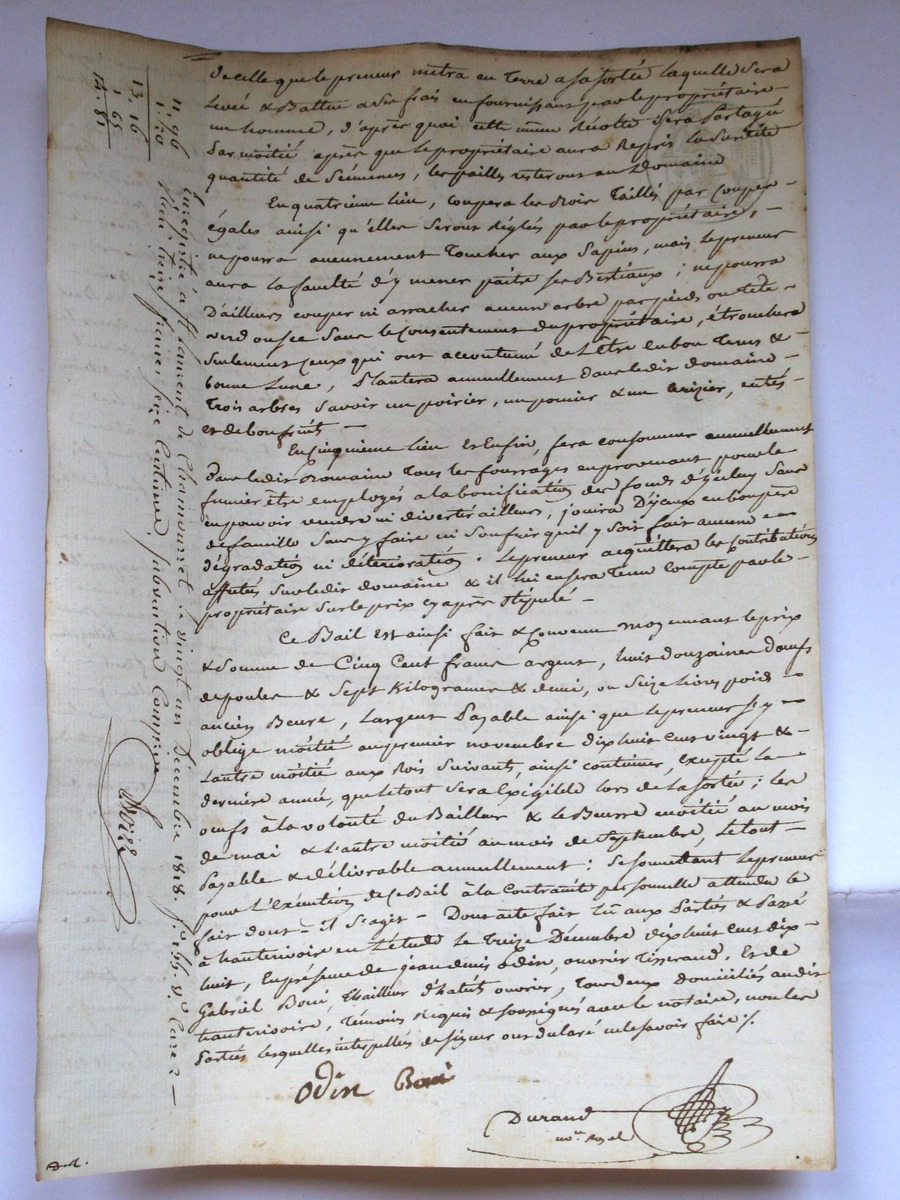 de celle que le preneur métra en Terre a sa sortée laquelle Sera
Levée & Battue a Ses frais en fournissant par le propriétaire
un homme, d'après quoi cette même Récolte Sera Partagée
Par moitié après que le propriétaire aura Repris la Susdite
quantité de Semences, les pailles resterons au Domaine
En quatrieme Lieu, Coupera les Bois Taillés par Coupes
égales ainsi qu'elles Serons Réglés par le propriétaire,
ne pourra aucunement Toucher aux Sapins, mais le preneur
aura la faculté d'y mener paître ses Bestiaux; ne pourra
D'ailleurs couper ni arracher aucun arbre par pieds ou Tête
verd ou sec Sans le Consentement du propriétaire, étronchera
Seulement ceux qui ont accoutumé de L'être en bon Tems &
bonne Lune, Plantera annuellement dans le dit domaine
Trois arbres Savoir un poirier, un pomier & un cerizier, entés
et de bon fruits
En Cinquieme lieu Et Enfin, fera consommer annuellement
Dans le dit Domaine Tous les fourrages en provenant pour le
fumier être employés a la bonification des fonds d'iceluy Sans
en pouvoir vendre ni divertir ailleurs; jouira D'iceux en bon père
de famille Sans y faire ni Soufrir qu'il y Soit fait aucune
dégradation ni détérioration. Le preneur acquittera les Contributions
affectés Sur le dit domaine & il lui en Sera Tenu Compte par le
propriétaire Sur le prix cy après Stipulé
Ce Bail Est ainsi fait & Convenu moyennant le prix
& Somme de Cinq Cent francs argent, huit Douzaines D'œufs
de poules & Sept Kilogrames & demi, ou Seize Livres poids
ancien Beure, L'argent Payable ainsi que le preneur S'y
oblige moitié au premier novembre dix huit cent vingt &
L'autre moitié aux Rois Suivants, ainsi continuer, excepté La
dernière année, que le tout Sera Exigible lors de La sortée; les
oeufs à la volonté du Bailleur & le Beurre moitié au mois
de mai & L'autre moitié au mois de Septembre, Le tout
Payable & délivrable annuellement: Se Soumettant Le preneur
pour L'Exécution de ce Bail à la Contrainte personnelle attendu le
fait dont il S'agit. Dont acte fait Lû aux Parties & Passé
à hauterivoire en L'étude Le Treize Décembre dix huit cent dix
huit, En présence de jean denis Odin, ouvrier Tisserand, Et de
Gabriel Boni, Thailleur d'habits ouvrier, Tous deux domiciliés au dit
hauterivoire, Témoins Requis & Soussignés avec le notaire, non les
Parties lesquelles interpellés de Signer ont déclaré ne le savoir faire ./.
Odin Boni
Durand
not. Royal
Enregistré a St Laurent de Chamousset le vingt un Décembre 1818. f.º 155. v.º Case 2
Reçu treize francs seize Centimes, subvention Comprise
11. 96
1. 20
13. 16
1. 65
14. 81